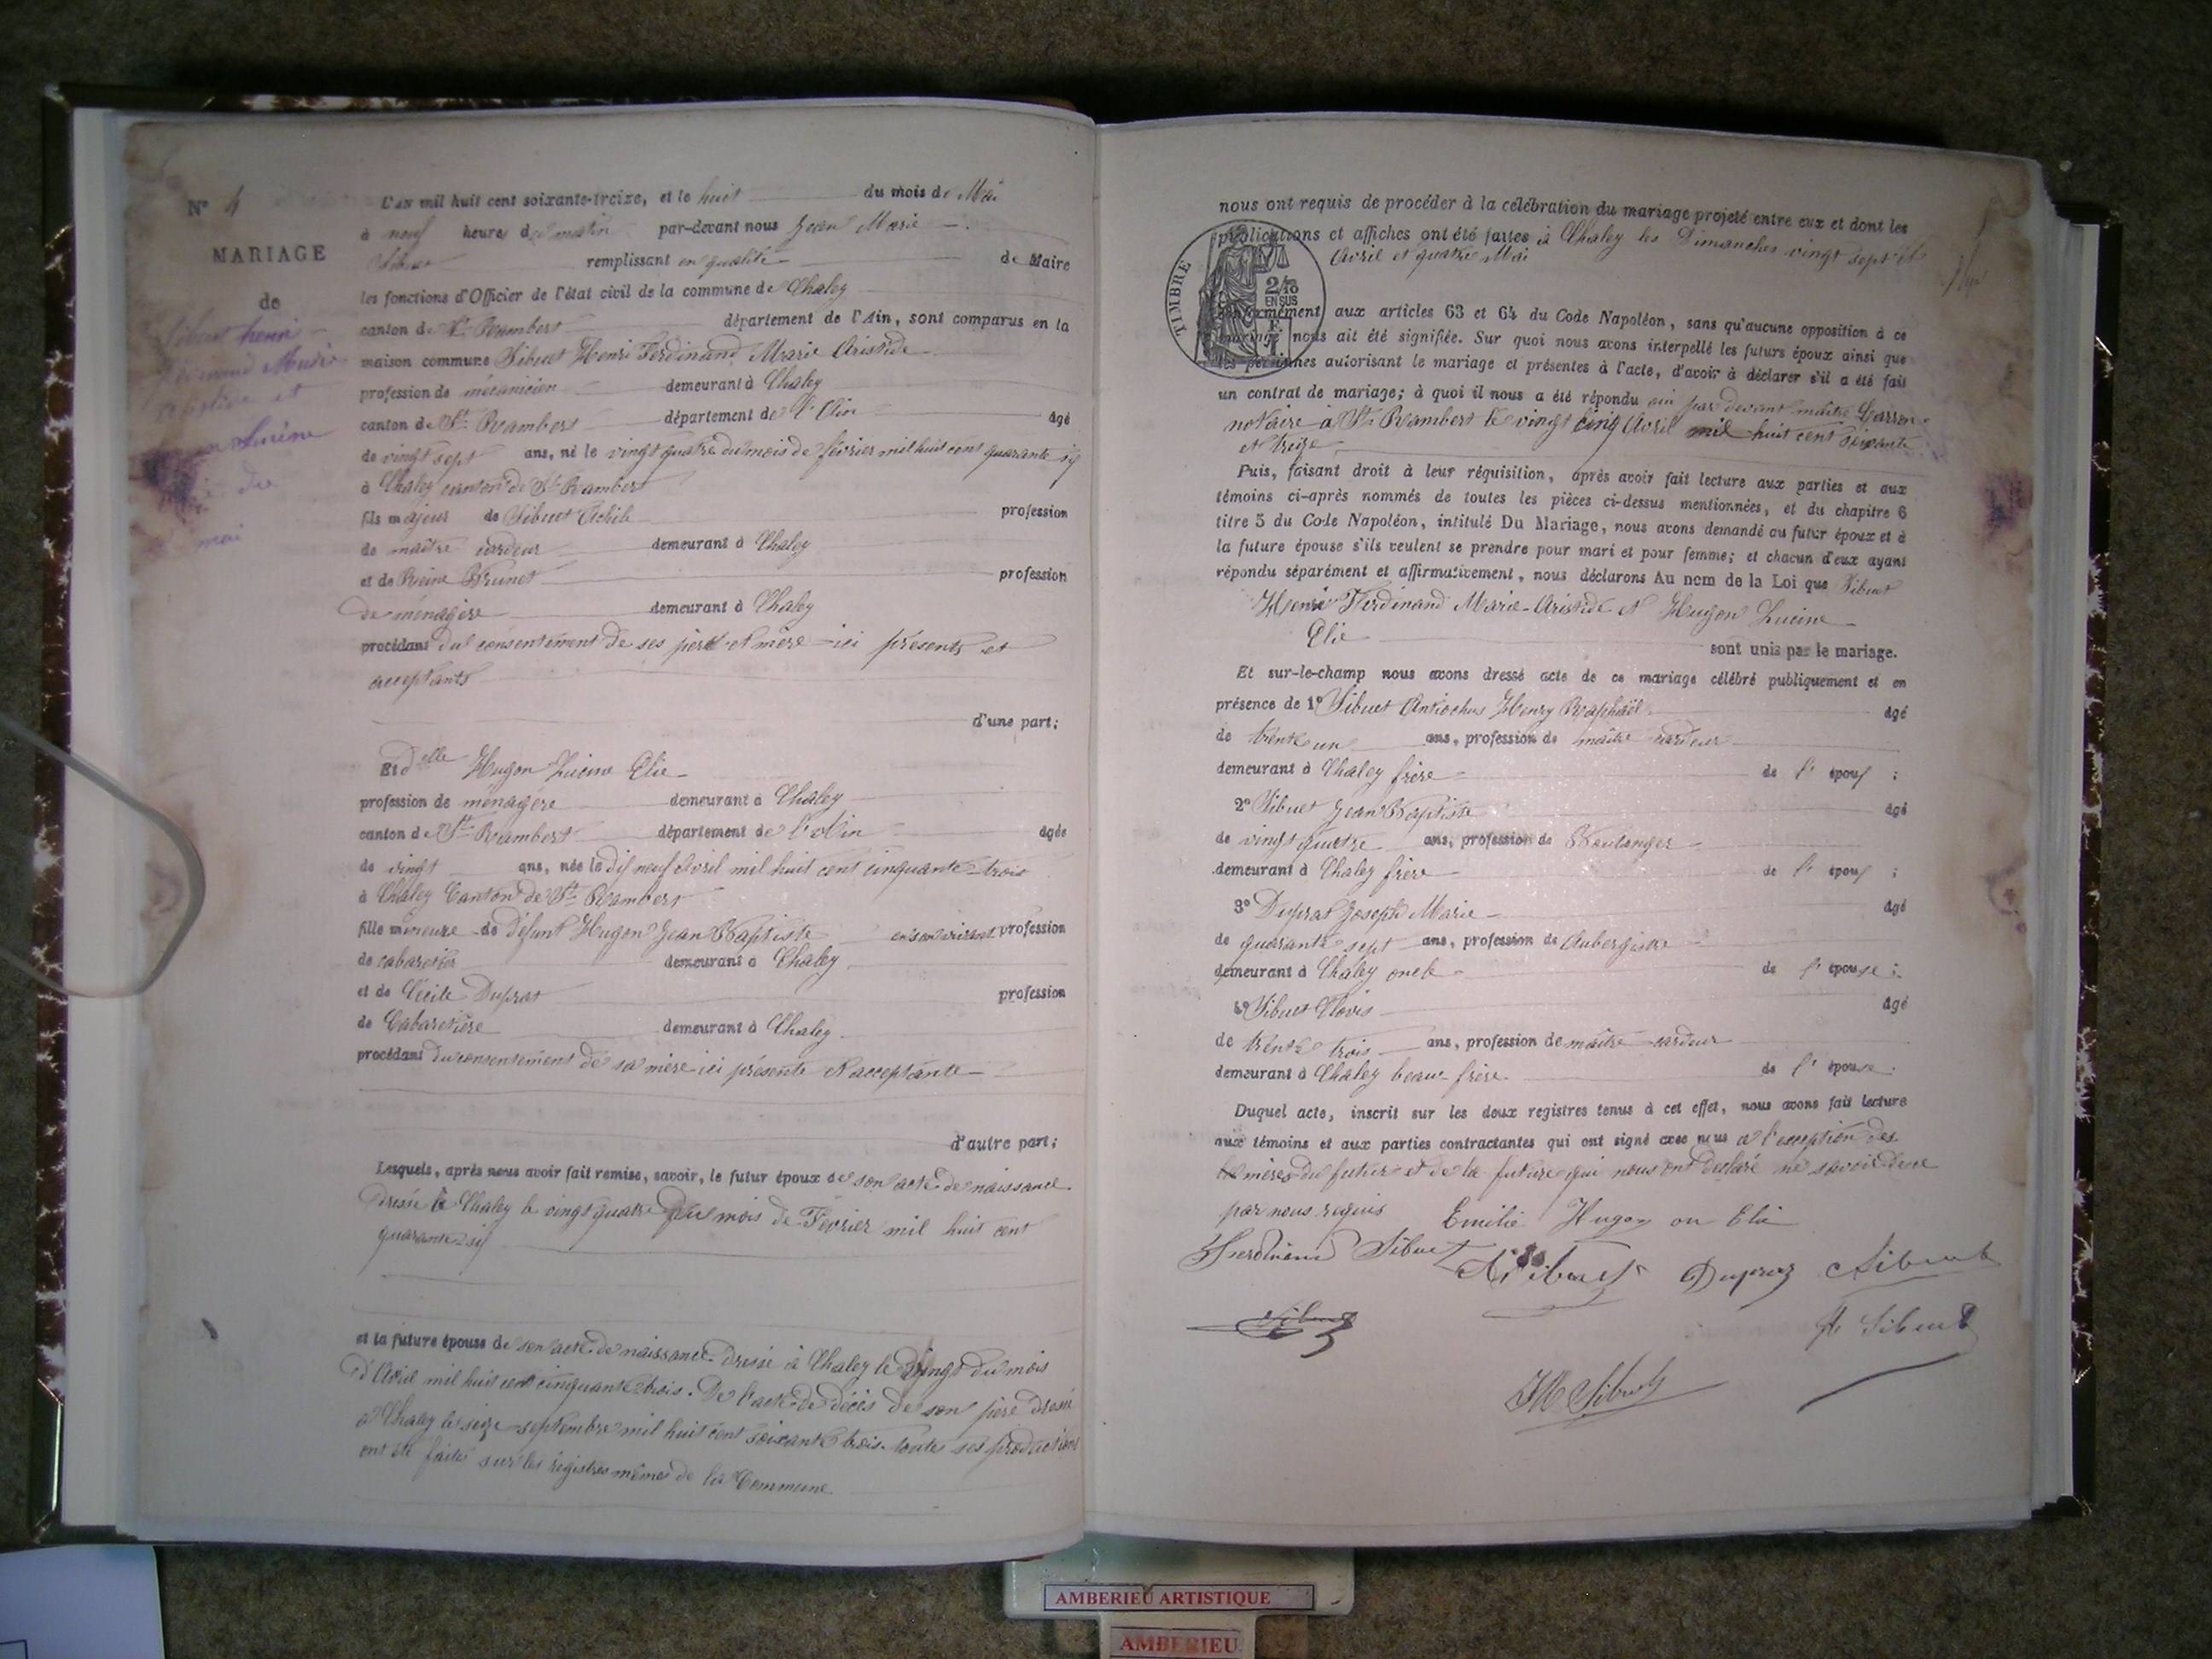 N° 4
MARIAGE
de
Sibuet henri
et
Lucine
mai
L'AN mil huit cent soixante-treize, et le huit du mois de Mai
à neuf heure du matin par-devant nous Jean Marie
Sibuet remplissant en qualité de Maire
les fonctions d'Officier de l'état civil de la commune de Chaley
canton de St Rambert département de l'Ain, sont comparus en la
maison commune Sibuet Henri Ferdinand Marie Aristide
profession de mécanicien demeurant à Chaley
canton de St Rambert département de l'Ain âgé
de vingt sept ans, né le vingt quatre du mois de février mil huit cent quarante six
à Chaley canton de St Rambert
fils majeur de Sibuet Achile profession
de maître cardeur demeurant à Chaley
et de Reine Brunet profession
de ménagère demeurant à Chaley
procédant du consentement de ses père et mère ici présents et
acceptants
d'une part;
Et delle Hugon Lucine Elie
profession de ménagère demeurant à Chaley
canton de St Rambert département de l'Ain âgée
de vingt ans, née le dix neuf Avril mil huit cent cinquante trois
à Chaley Canton de St Rambert
fille mineure de défunt Hugon Jean Baptiste en son vivant profession
de cabaretier demeurant à Chaley
et de Cécile Duprat profession
de Cabaretière demeurant à Chaley
procédant du consentement de sa mère ici présente et acceptante
d'autre part;
Lesquels, après nous avoir fait remise, savoir, le futur époux de son acte de naissance
dressé à Chaley le vingt quatre du mois de Février mil huit cent
quarante six
et la future épouse de son acte de naissance dressé à Chaley le vingt du mois
d'Avril mil huit cent cinquante trois. De l'acte de décès de son père dressé
à Chaley le seize septembre mil huit cent soixante trois. toutes ses productions
ont été faites sur les registres mêmes de la Commune
nous ont requis de procéder à la célébration du mariage projeté entre eux et dont les
publications et affiches ont été faites à Chaley les Dimanches vingt sept
Avril et quatre Mai
TIMBRE
2/10
EN SUS
conformément aux articles 63 et 64 du Code Napoléon, sans qu'aucune opposition à ce
mariage nous ait été signifiée. Sur quoi nous avons interpellé les futurs époux ainsi que
les personnes autorisant le mariage et présentes à l'acte, d'avoir à déclarer s'il a été fait
un contrat de mariage; à quoi il nous a été répondu oui par devant maître
notaire à St Rambert le vingt cinq Avril mil huit cent soixante
et treize
Puis, faisant droit à leur réquisition, après avoir fait lecture aux parties et aux
témoins ci-après nommés de toutes les pièces ci-dessus mentionnées, et du chapitre 6
titre 5 du Code Napoléon, intitulé Du Mariage, nous avons demandé au futur époux et à
la future épouse s'ils veulent se prendre pour mari et pour femme; et chacun d'eux ayant
répondu séparément et affirmativement, nous déclarons Au nom de la Loi que Sibuet
Henri Ferdinand Marie-Aristide et Hugon Lucine
Elie sont unis par le mariage.
Et sur-le-champ nous avons dressé acte de ce mariage célébré publiquement et en
présence de 1° Sibuet Antiochus Henry Raphaël âgé
de trente un ans, profession de maître cardeur
demeurant à Chaley frère de l'époux ;
2° Sibuet Jean Baptiste âgé
de vingt quatre ans, profession de Boulanger
demeurant à Chaley frère de l'époux ;
3° Duprat Joseph Marie âgé
de quarante sept ans, profession de Aubergiste
demeurant à Chaley oncle de l'épouse ;
4° Sibuet Clovis âgé
de trente trois ans, profession de maître cardeur
demeurant à Chaley beau frère de l'épouse.
Duquel acte, inscrit sur les deux registres tenus à cet effet, nous avons fait lecture
aux témoins et aux parties contractantes qui ont signé avec nous à l'exception des
mères du futur et de la future qui nous ont déclaré ne savoir
par nous requis Emilie Hugon ou Elie
Ferdinand Sibuet Sibuet Sibuet
Sibuet
A Sibuet
JM Sibuet
AMBERIEU ARTISTIQUE
AMBERIEU